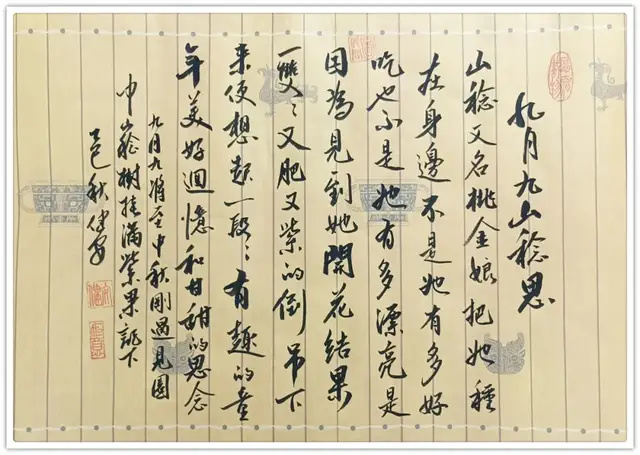 九月九山稔思
山稔又名桃金娘把她種
在身邊不是她有多好
吃也不是她有多漂亮是
因為見到她開花结果
一雙々又肥又紫的倒吊下
来便想起一段々有趣的童
年美好迴憶和甘甜的思念
九月九將至中秋剛過見園
中山稔樹挂滿紫果下
秋